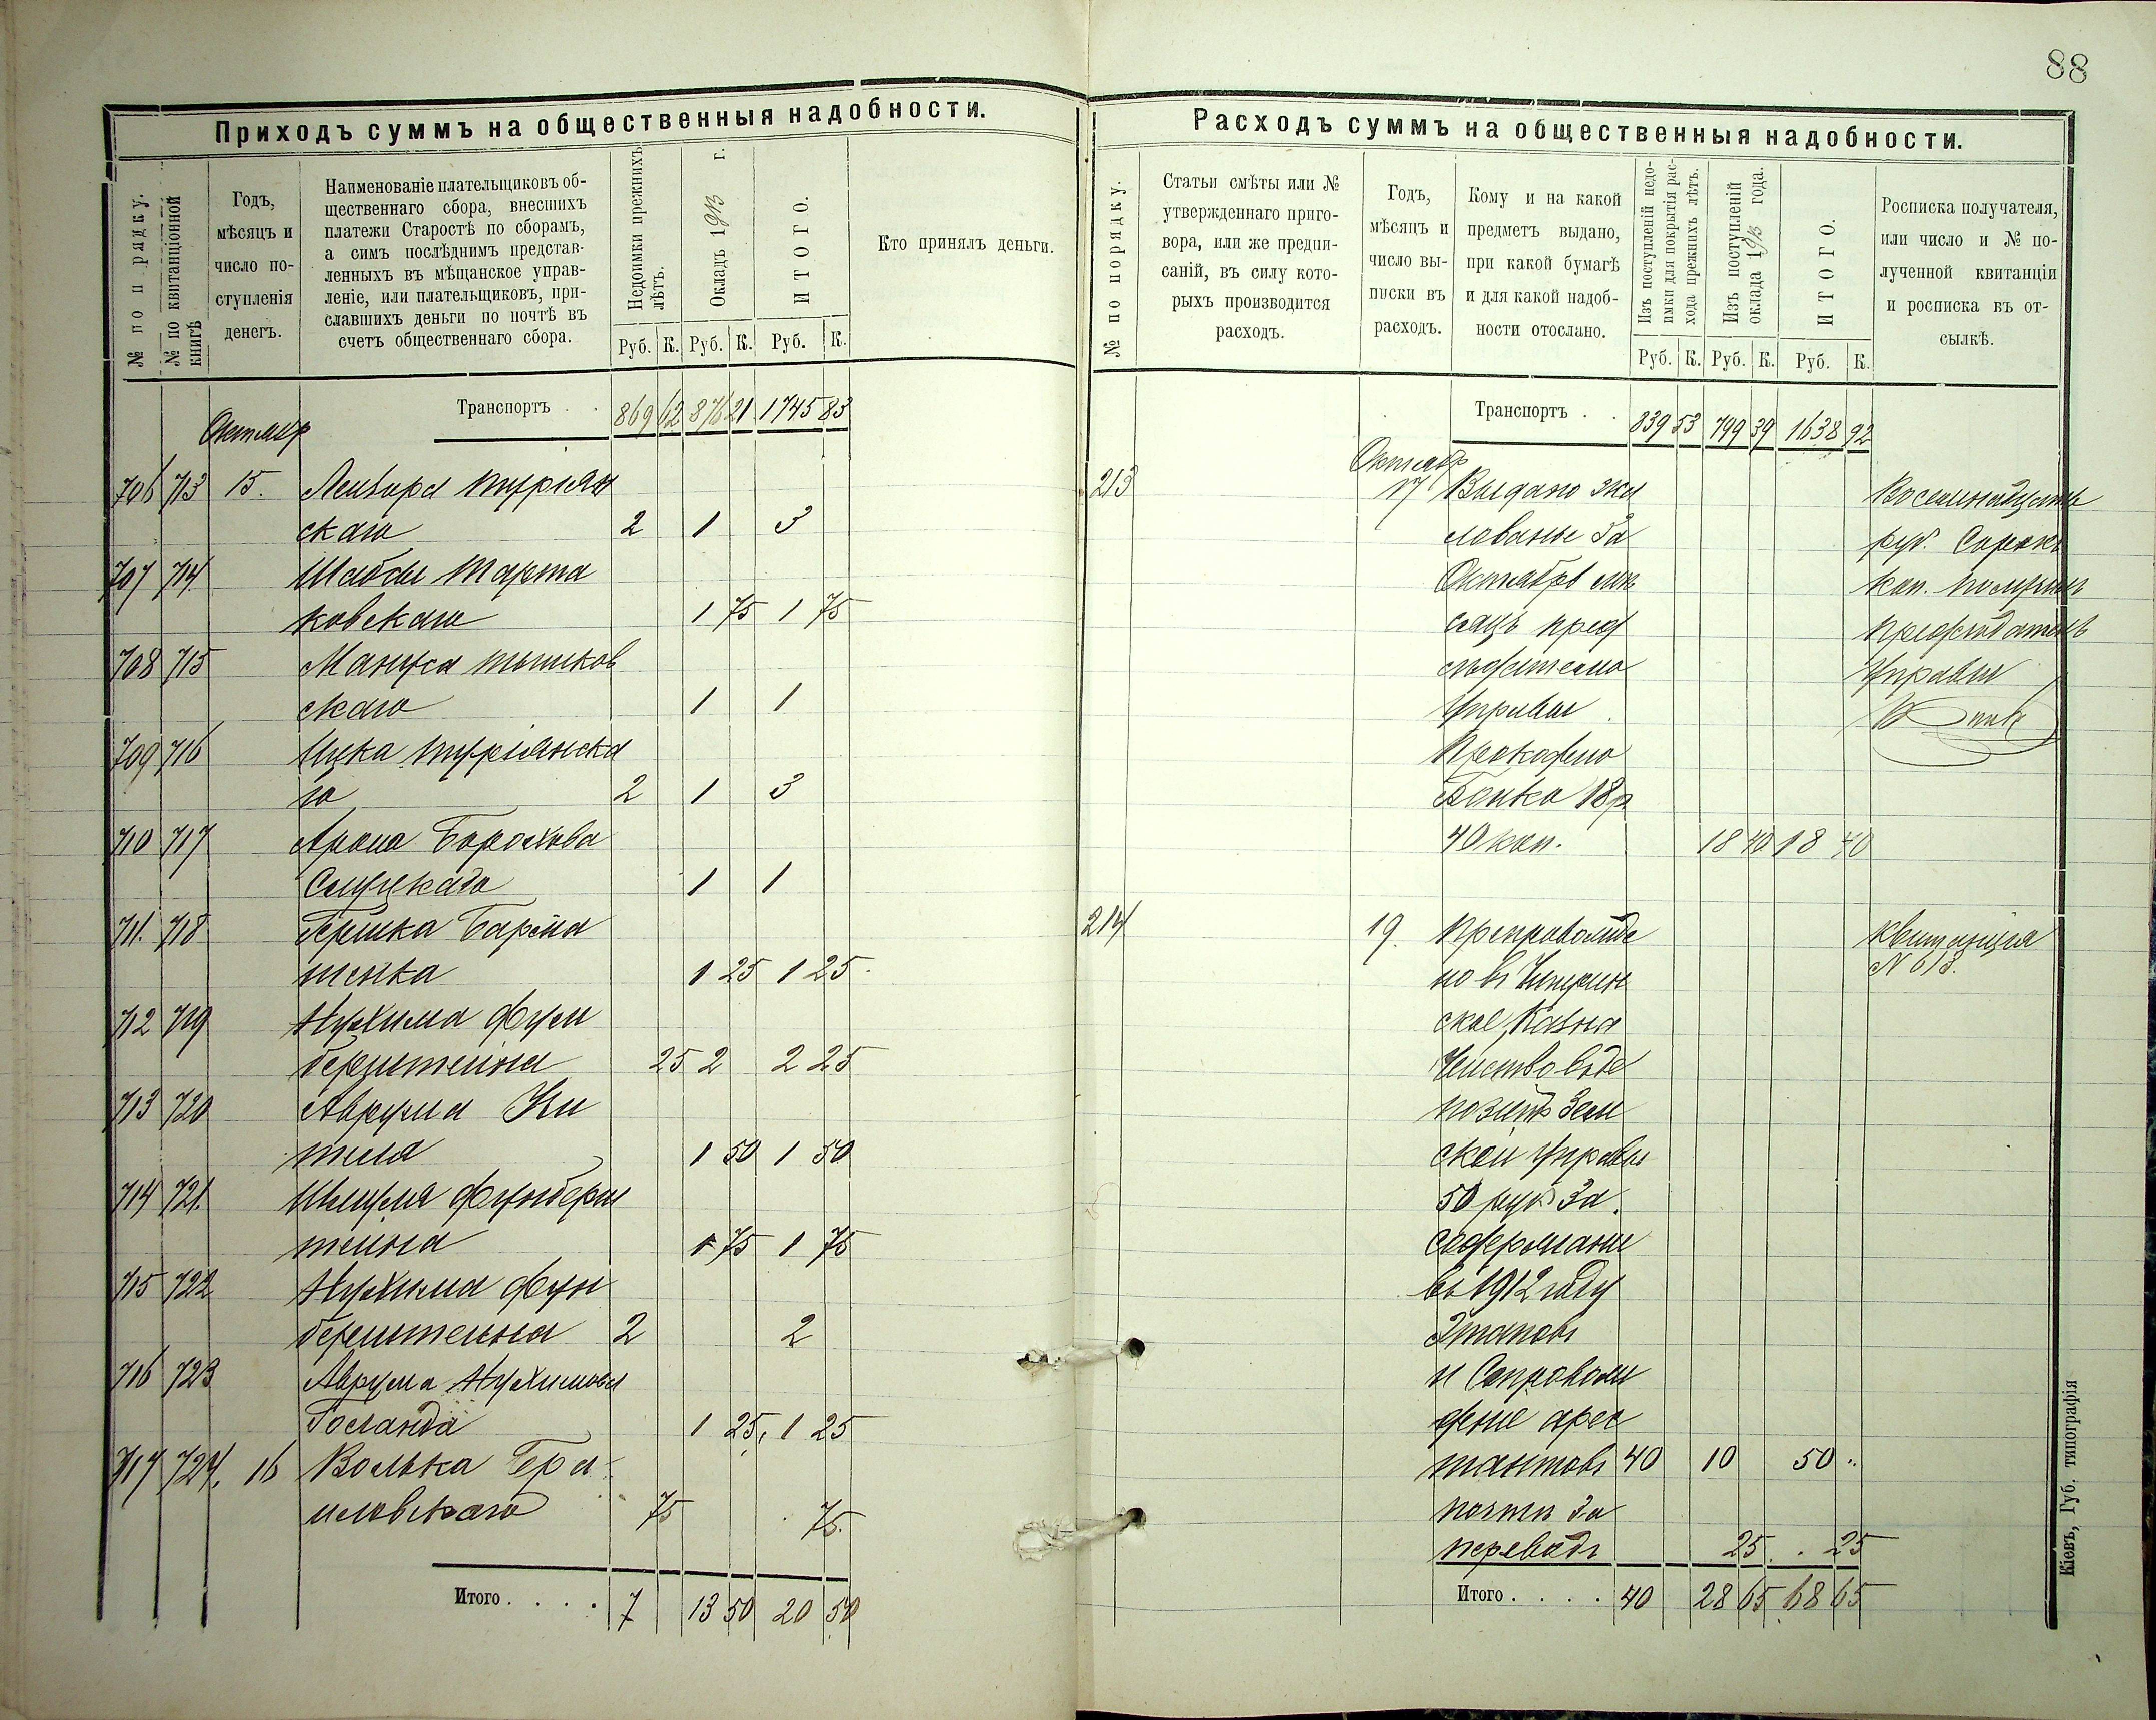 88
Приходъ суммъ на общественныя надобности.
№ по порядку.
№ по квитанціонной книгѣ
Годъ, мѣсяцъ и число поступленія денегъ.
Наименованіе плательщиковъ об-
щественнаго сбора, внесшихъ
платежи Старостѣ по сборамъ,
а симъ послѣднимъ представ-
ленныхъ въ мѣщанское управ-
леніе, или плательщиковъ, при-
славшихъ деньги по почтѣ въ
счетъ общественнаго сбора.
Недоимки прежнихъ лѣтъ.
Окладъ 1913 г.
ИТОГО.
Кто принялъ деньги.
Руб. К. Руб. К. Руб. К.
Транспортъ . . 869 62 876 21 1745 83
Октябр
706 713 15.
скаго 2 1 3
707 714 Тарта
ковскаго 1 75 1 75
708 715
скаго 1 1
709 716 Ицка Туріянска
го 2 1 3
710 717 Арона Борохова
Слуцкаго 1 1
711. 718
штенка 1 25 1 25
712 719 Нухима Фун
берштейна 25 2 2 25
713 720 Аврума Ки
теля 1 50 1 50
714 721. Фунберш
тейна 1 75 1 75
715 722 Нухима Фун
берштейна 2 2
716 723 Аврума Нухимова
1 25 1 25
717 724. 16 Волька
75 75.
Итого . . . . 7 13 50 20 50
Расходъ суммъ на общественныя надобности.
№ по порядку.
Статьи смѣты или №
утвержденнаго приго-
вора, или же предпи-
саній, въ силу кото-
рыхъ производится
расходъ.
Годъ,
мѣсяцъ и
число вы-
писки въ
расходъ.
Кому и на какой
предметъ выдано,
при какой бумагѣ
и для какой надоб-
ности отослано.
Изъ поступленій недо-
имки для покрытія рас-
хода прежнихъ лѣтъ.
Изъ поступленій
оклада 1913 года.
ИТОГО.
Росписка получателя,
или число и № по-
лученной квитанціи
и росписка въ от-
сылкѣ.
Руб. К. Руб. К. Руб. К.
Транспортъ . . 839 53 799 39 1638 92
Октябр
213 17 Выдано жа Восемнадцать
лованье за руб. Сорокъ
Октябрь мѣ коп. получилъ
сяцъ пред предсѣдатель
сѣдателю Управы
Управы
Прокофію
Бойко 18 р
40 коп. 18 40 18 40
214 19. препровожде квитанція
но въ Чигирин № 613.
ское Казна
чейство въ де
позитъ Зем
ской Управы
50 руб за
содержаніе
въ 1912 году
Этаповъ
и Сопровож
деніе арес
тантовъ 40 10 50
почтѣ за
переводъ 25 25
Итого . . . . 40 28 65 68 65
Кіевъ, Губ. типографія